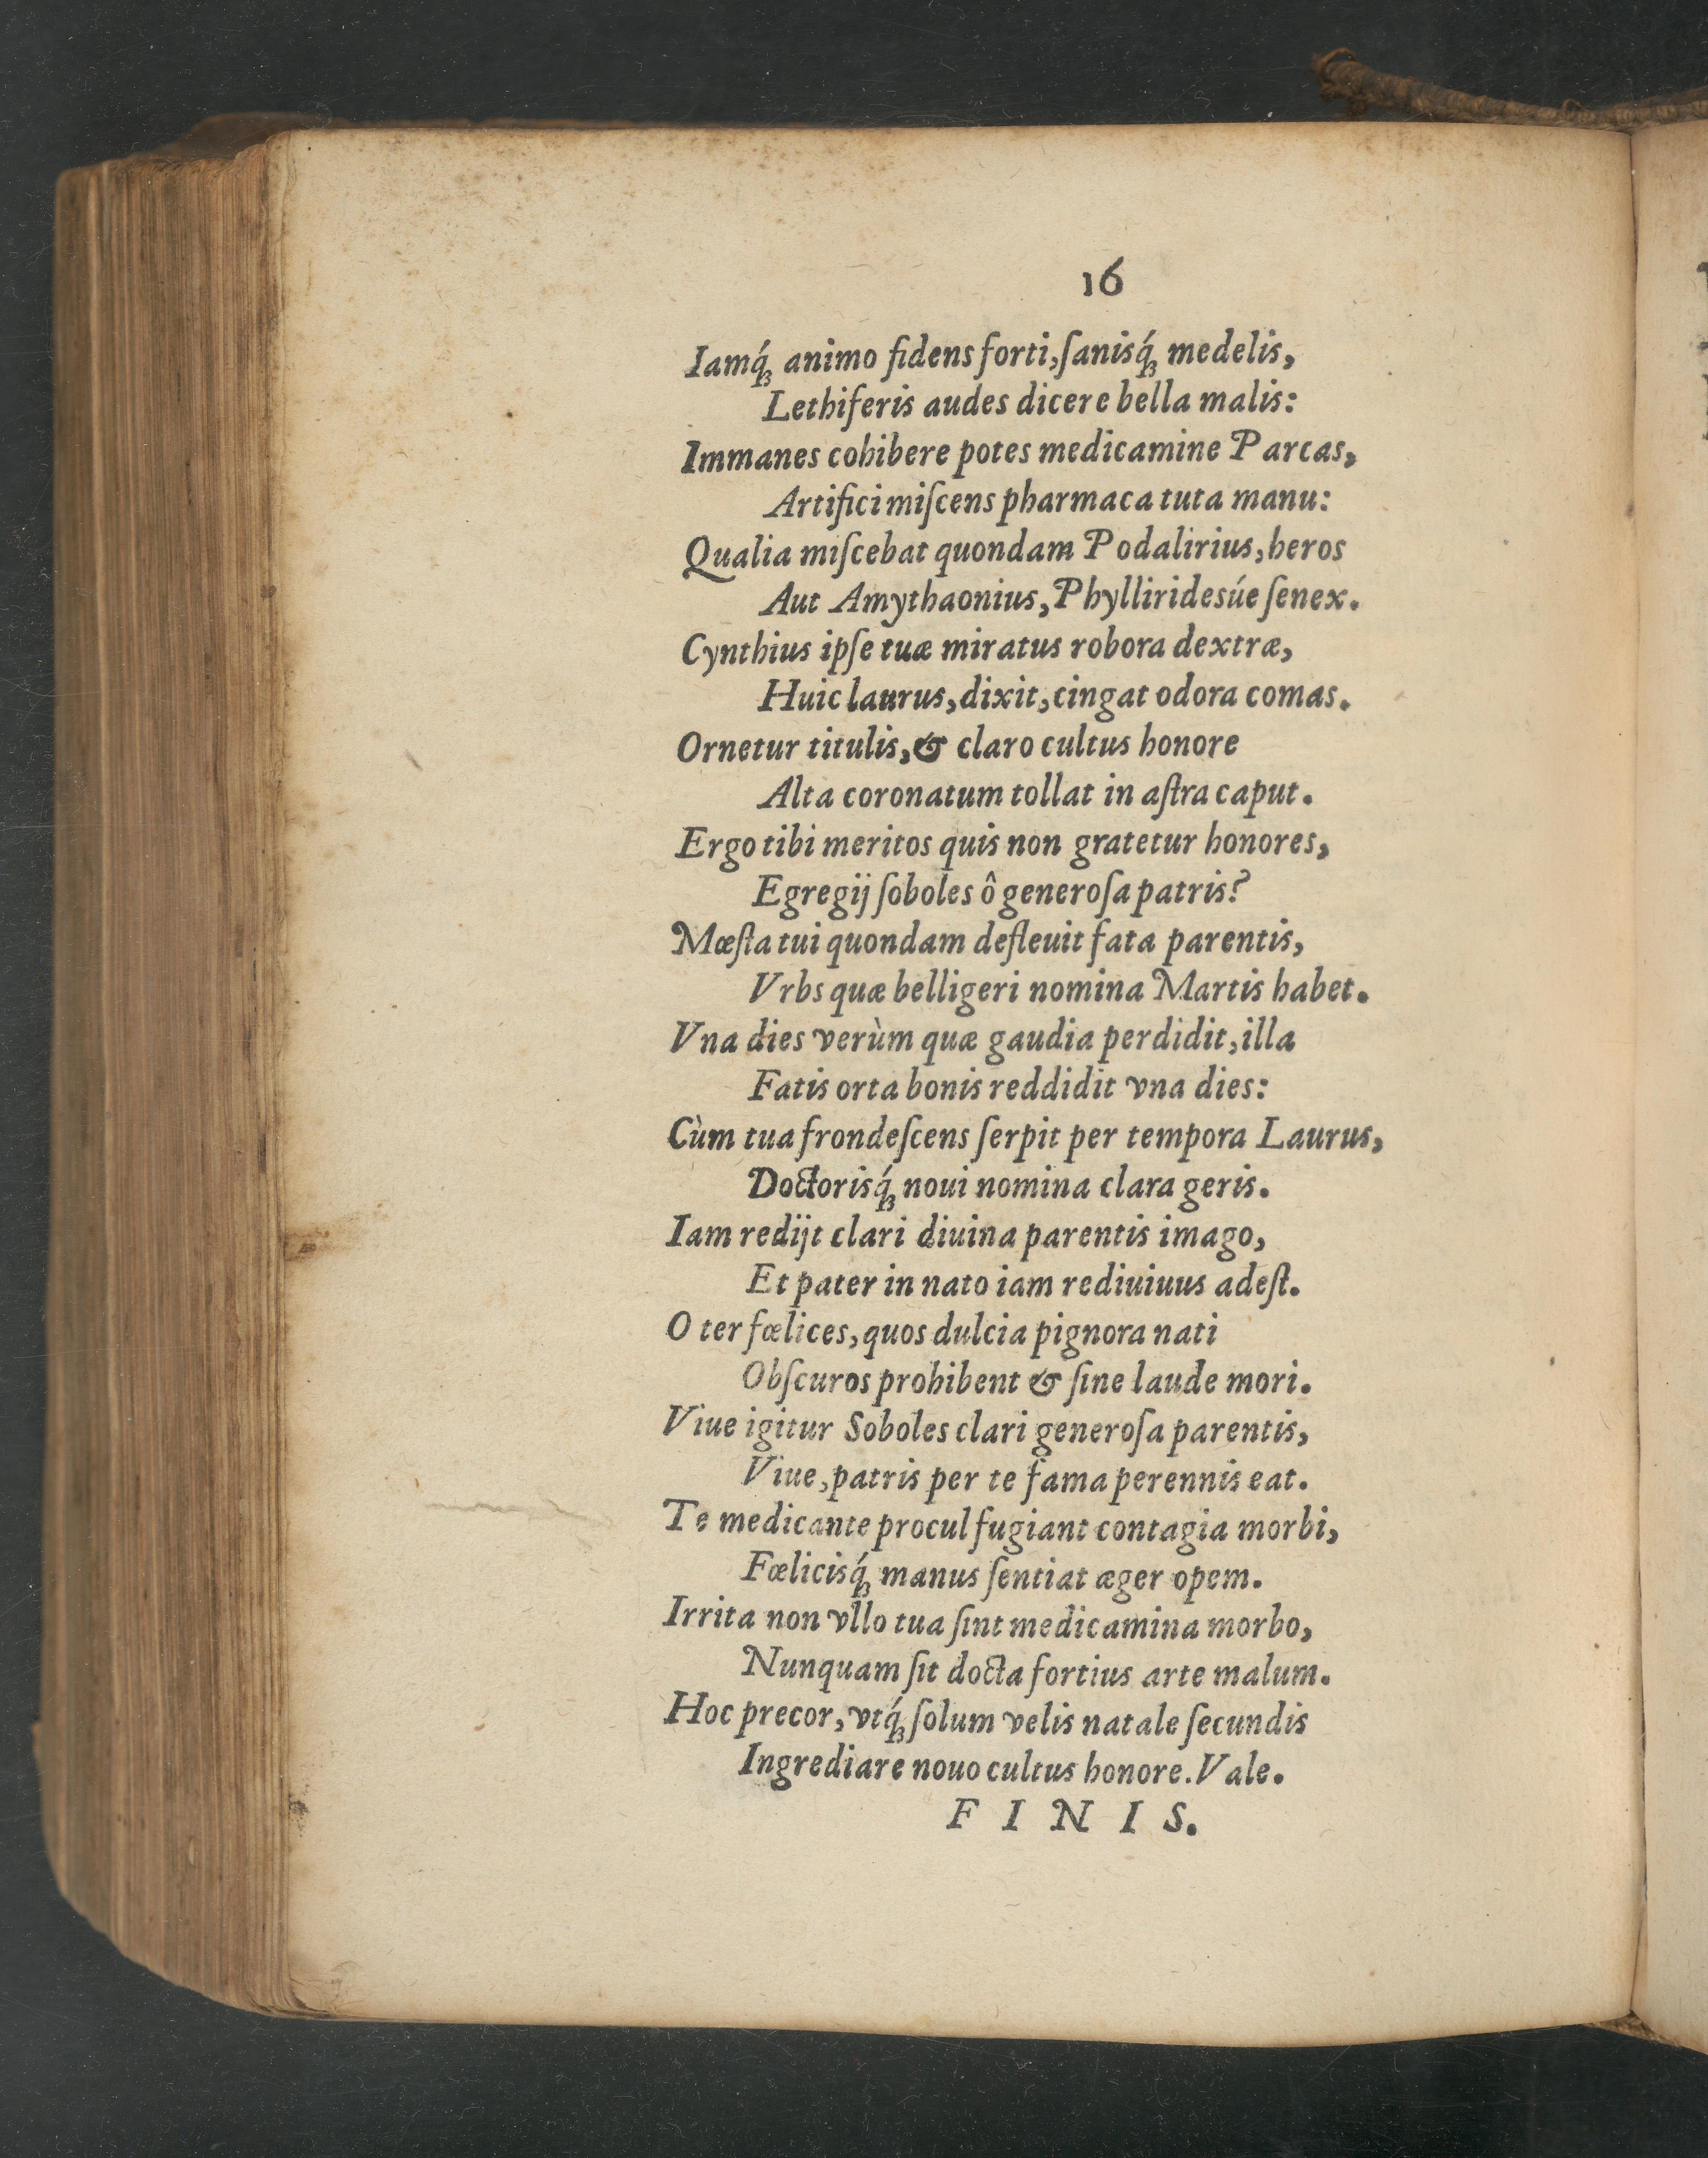 16
Iamq́ꝫ animo fidens forti, ſanisq́ꝫ medelis,
Lethiferis audes dicere bella malis:
Immanes cohibere potes medicamine Parcas,
Artifici miſcens pharmaca tuta manu:
Qualia miſcebat quondam Podalirius, heros
Aut Amythaonius, Phylliridesúe ſenex.
Cynthius ipſe tuæ miratus robora dextræ,
Huic laurus, dixit, cingat odora comas.
Ornetur titulis, & claro cultus honore
Alta coronatum tollat in aſtra caput.
Ergo tibi meritos quis non gratetur honores,
Egregij ſoboles ô generoſa patris?
Mœſta tui quondam defleuit fata parentis,
Vrbs quæ belligeri nomina Martis habet.
Vna dies verùm quæ gaudia perdidit, illa
Fatis orta bonis reddidit vna dies:
Cùm tua frondeſcens ſerpit per tempora Laurus,
Doctorisq́ꝫ noui nomina clara geris.
Iam redijt clari diuina parentis imago,
Et pater in nato iam rediuiuus adeſt.
O ter fœlices, quos dulcia pignora nati
Obſcuros prohibent & ſine laude mori.
Viue igitur Soboles clari generoſa parentis,
Viue, patris per te fama perennis eat.
Te medicante procul fugiant contagia morbi,
Fœlicisq́ꝫ manus ſentiat æger opem.
Irrita non vllo tua ſint medicamina morbo,
Nunquam ſit docta fortius arte malum.
Hoc precor, vtq́ꝫ ſolum velis natale ſecundis
Ingrediare nouo cultus honore. Vale.
F I N I S.